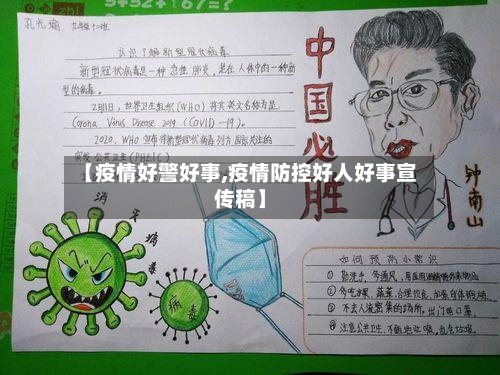 zhi
5+52+2=
孔光瑜, 九年级十二班
认识了解新型冠状病毒
新型冠状病毒是一种急性肺炎,是在人体中的一种新
型的病毒。
2月11日,世界卫生组织(WHO)将其英文名称为是
Corona Virus Disease 2019 (COVID-19)。
2020,WHO宣布将新型冠状病毒列为国际关注的
突发公共卫生(PHEIC)
中国必胜
【疫情好警好事,疫情防控好人好事宣
传稿】
钟南山
消灭病毒
病毒
如何预防小常识
① 勤洗手,多通风,
② 多吃水果、蔬菜,合理饮食,加强身体锻炼
③ 不去人流密集的场所,出门戴口罩。
④ 注意公共卫生,不随地吐痰,